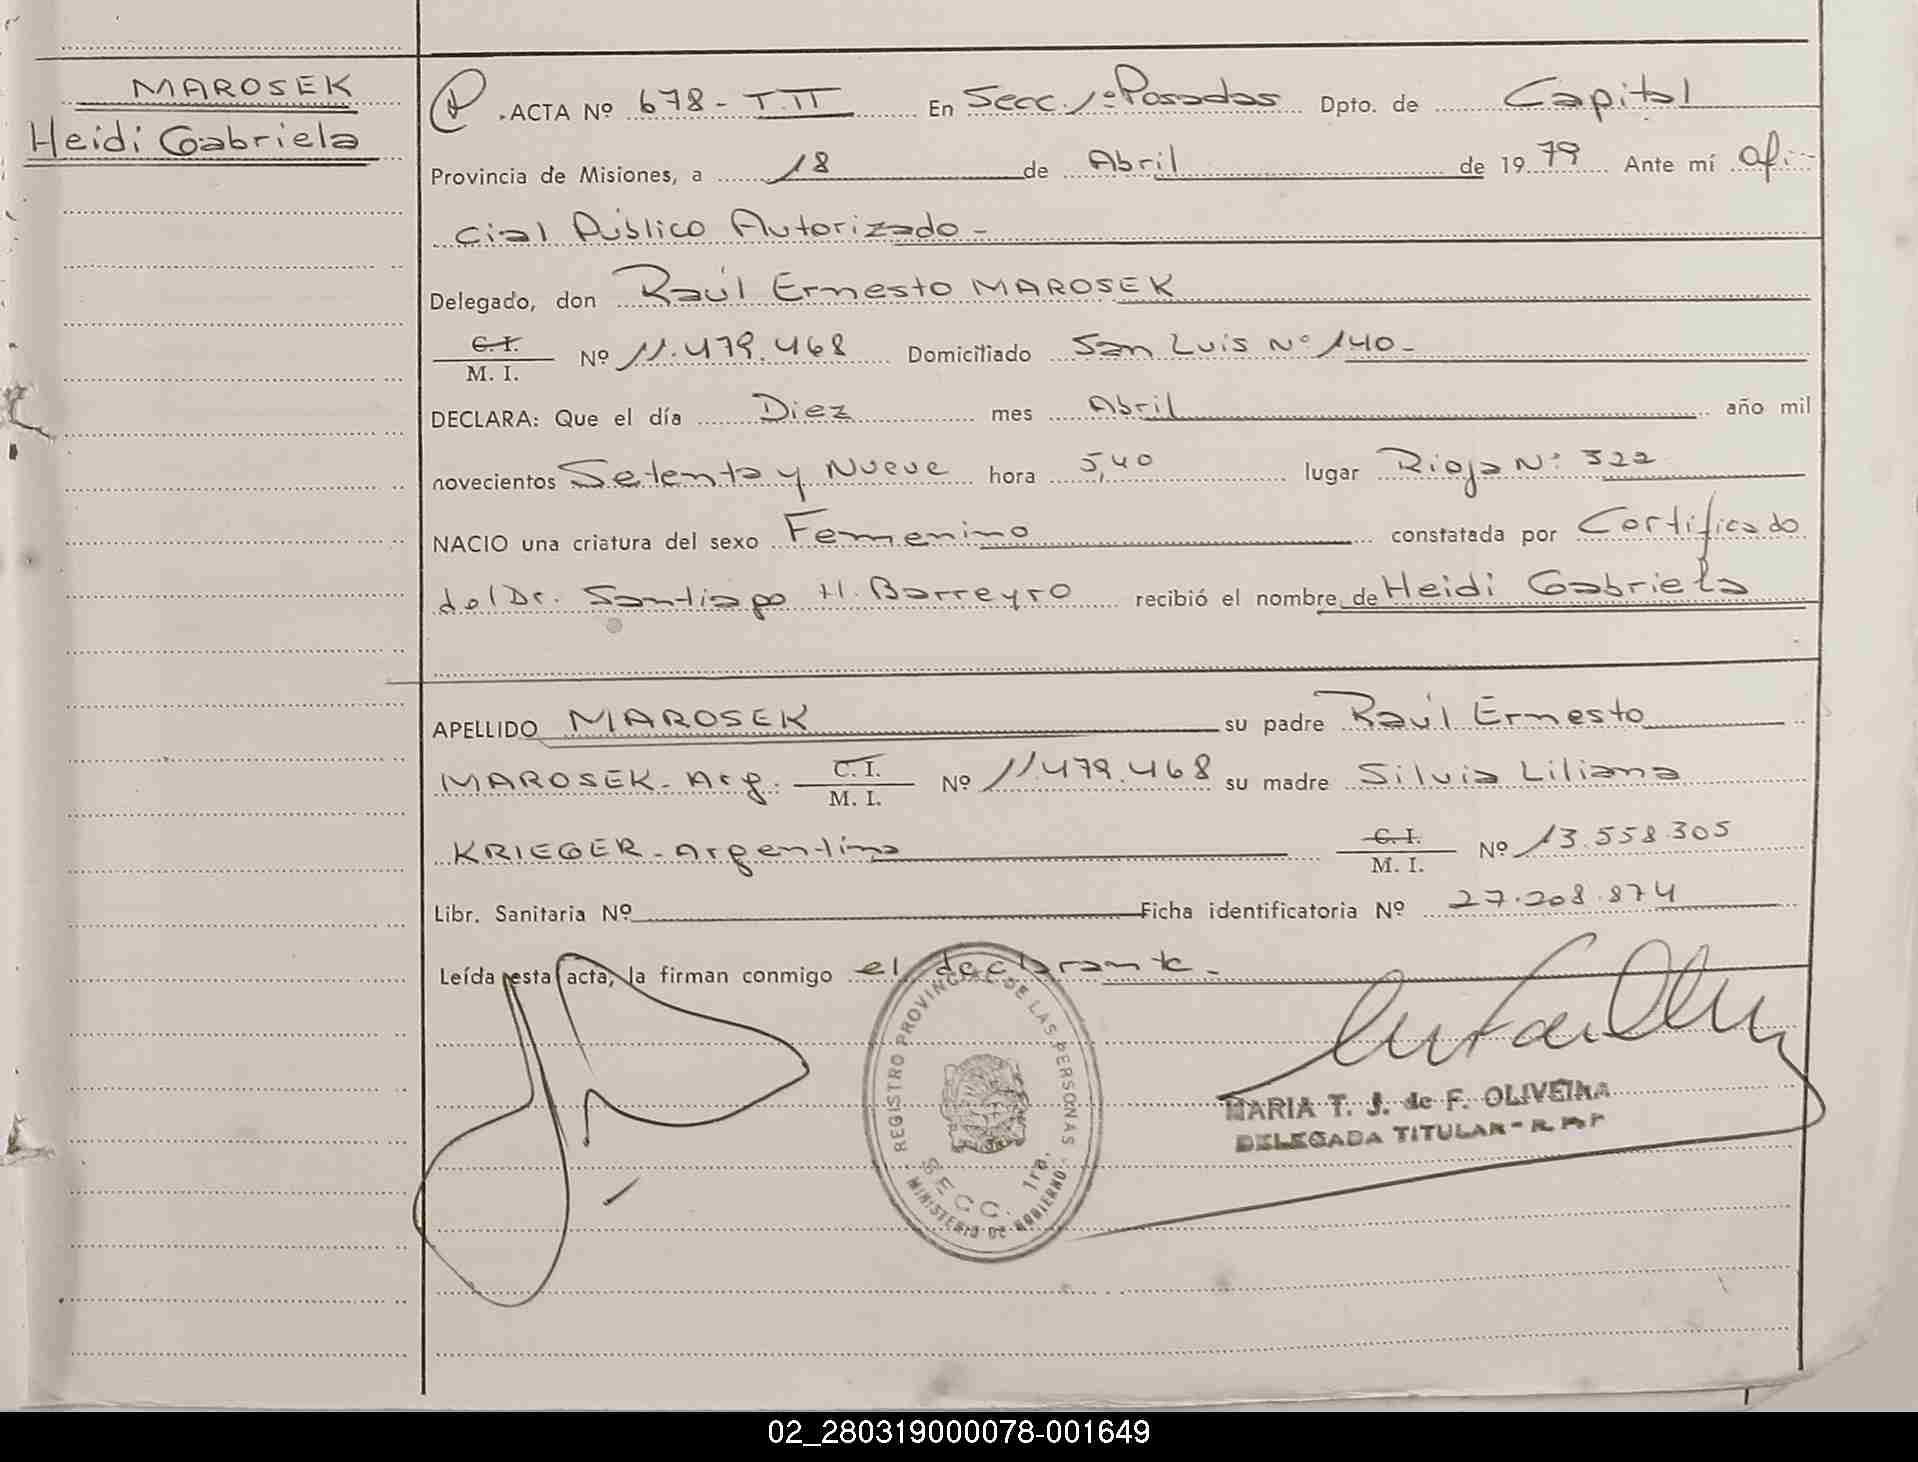 MAROSEK
Heidi Gabriela
ACTA Nº 678 - T. II En Secc. 1º Posadas Dpto. de Capital
Provincia de Misiones, a 18 de Abril de 1979 Ante mí Ofi-
cial Público Autorizado -
Delegado, don Raúl Ernesto MAROSEK
C. I.
M. I. Nº 11.479.468 Domiciliado San Luis Nº 140 -
DECLARA: Que el día Diez mes Abril año mil
novecientos Setenta y Nueve hora 5,40 lugar Rioja Nº 322
NACIO una criatura del sexo Femenino constatada por Certificado
del Dr. Santiago H. Barreyro recibió el nombre de Heidi Gabriela
APELLIDO MAROSEK su padre Raúl Ernesto
MAROSEK - Arg. C. I.
M. I. Nº 11.479.468 su madre Silvia Liliana
KRIEGER - Argentina C. I.
M. I. Nº 13.558.305
Libr. Sanitaria Nº Ficha identificatoria Nº 27.208.874
Leída esta acta, la firman conmigo el declarante -
REGISTRO PROVINCIAL DE LAS PERSONAS
SECC. 1ra.
MINISTERIO DE GOBIERNO
MARIA T. J. de F. OLIVEIRA
DELEGADA TITULAR - R. P. P
02_280319000078-001649